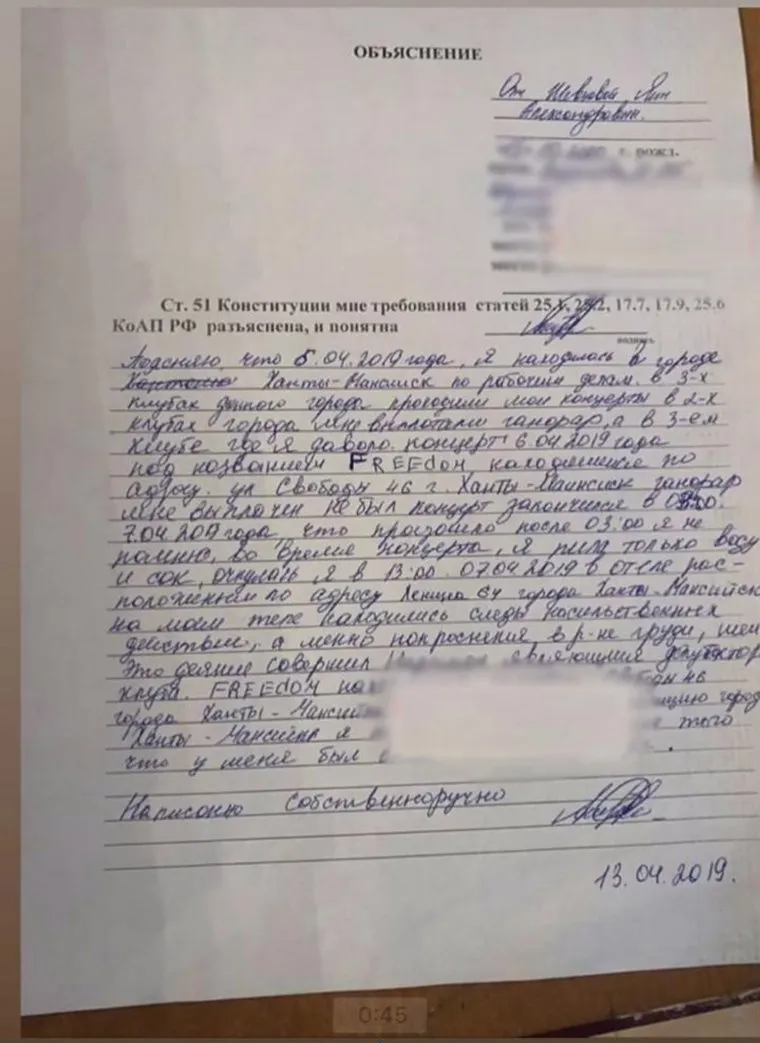 ОБЪЯСНЕНИЕ
От Шевцовой Яны
Александровны.
г. рожд.
Ст. 51 Конституции мне требования статей 25.1, 25.2, 17.7, 17.9, 25.6
КоАП РФ разъяснена, и понятна
подпись
Поясняю, что 5.04.2019 года, я находилась в городе
Ханты-Мансийск по рабочим делам. в 3-х
клубах данного города проходили мои концерты в 2-х
клубах города мне выплатили ганорар, а в 3-ем
клубе где я давала концерт 6 04 2019 года
под названием FREEdom находящимся по
адресу. ул Свободы 46 г. Ханты-Маинсиск ганорар
мне выплачен не был концерт закончился в 03:00.
7.04 2019 года, что произошло после 03:00 я не
помню, во время концерта, я пила только воду
и сок, очнулась я в 13:00. 07.04 2019 в отеле рас-
положенным по адресу Ленина 64 города Ханты-Мансийск
на моем теле находились следы насильственных
действий, а менно покраснения в р-не груди, шеи
Это деяние совершил являющимся
клуба. FREEdom на 46
города Ханты-Мансийс город
Ханты-Мансийска я того
что у меня был
Написоно собственноручно
13.04.2019.
0:45